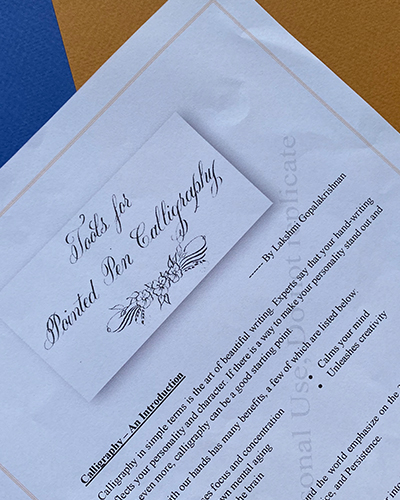 Tools for
Pointed Pen Calligraphy
By Lakshmi Gopalakrishnan
Calligraphy – An Introduction
Calligraphy in simple terms is the art of beautiful writing. Experts say that your hand-writing
reflects your personality and character. If there is a way to make your personality stand out and
even more, calligraphy can be a good starting point
with our hands has many benefits, a few of which are listed below:
focus and concentration
Calms your mind
mental aging
Unleashes creativity
the brain
the world emphasize on the
and Persistence.
Use Do not